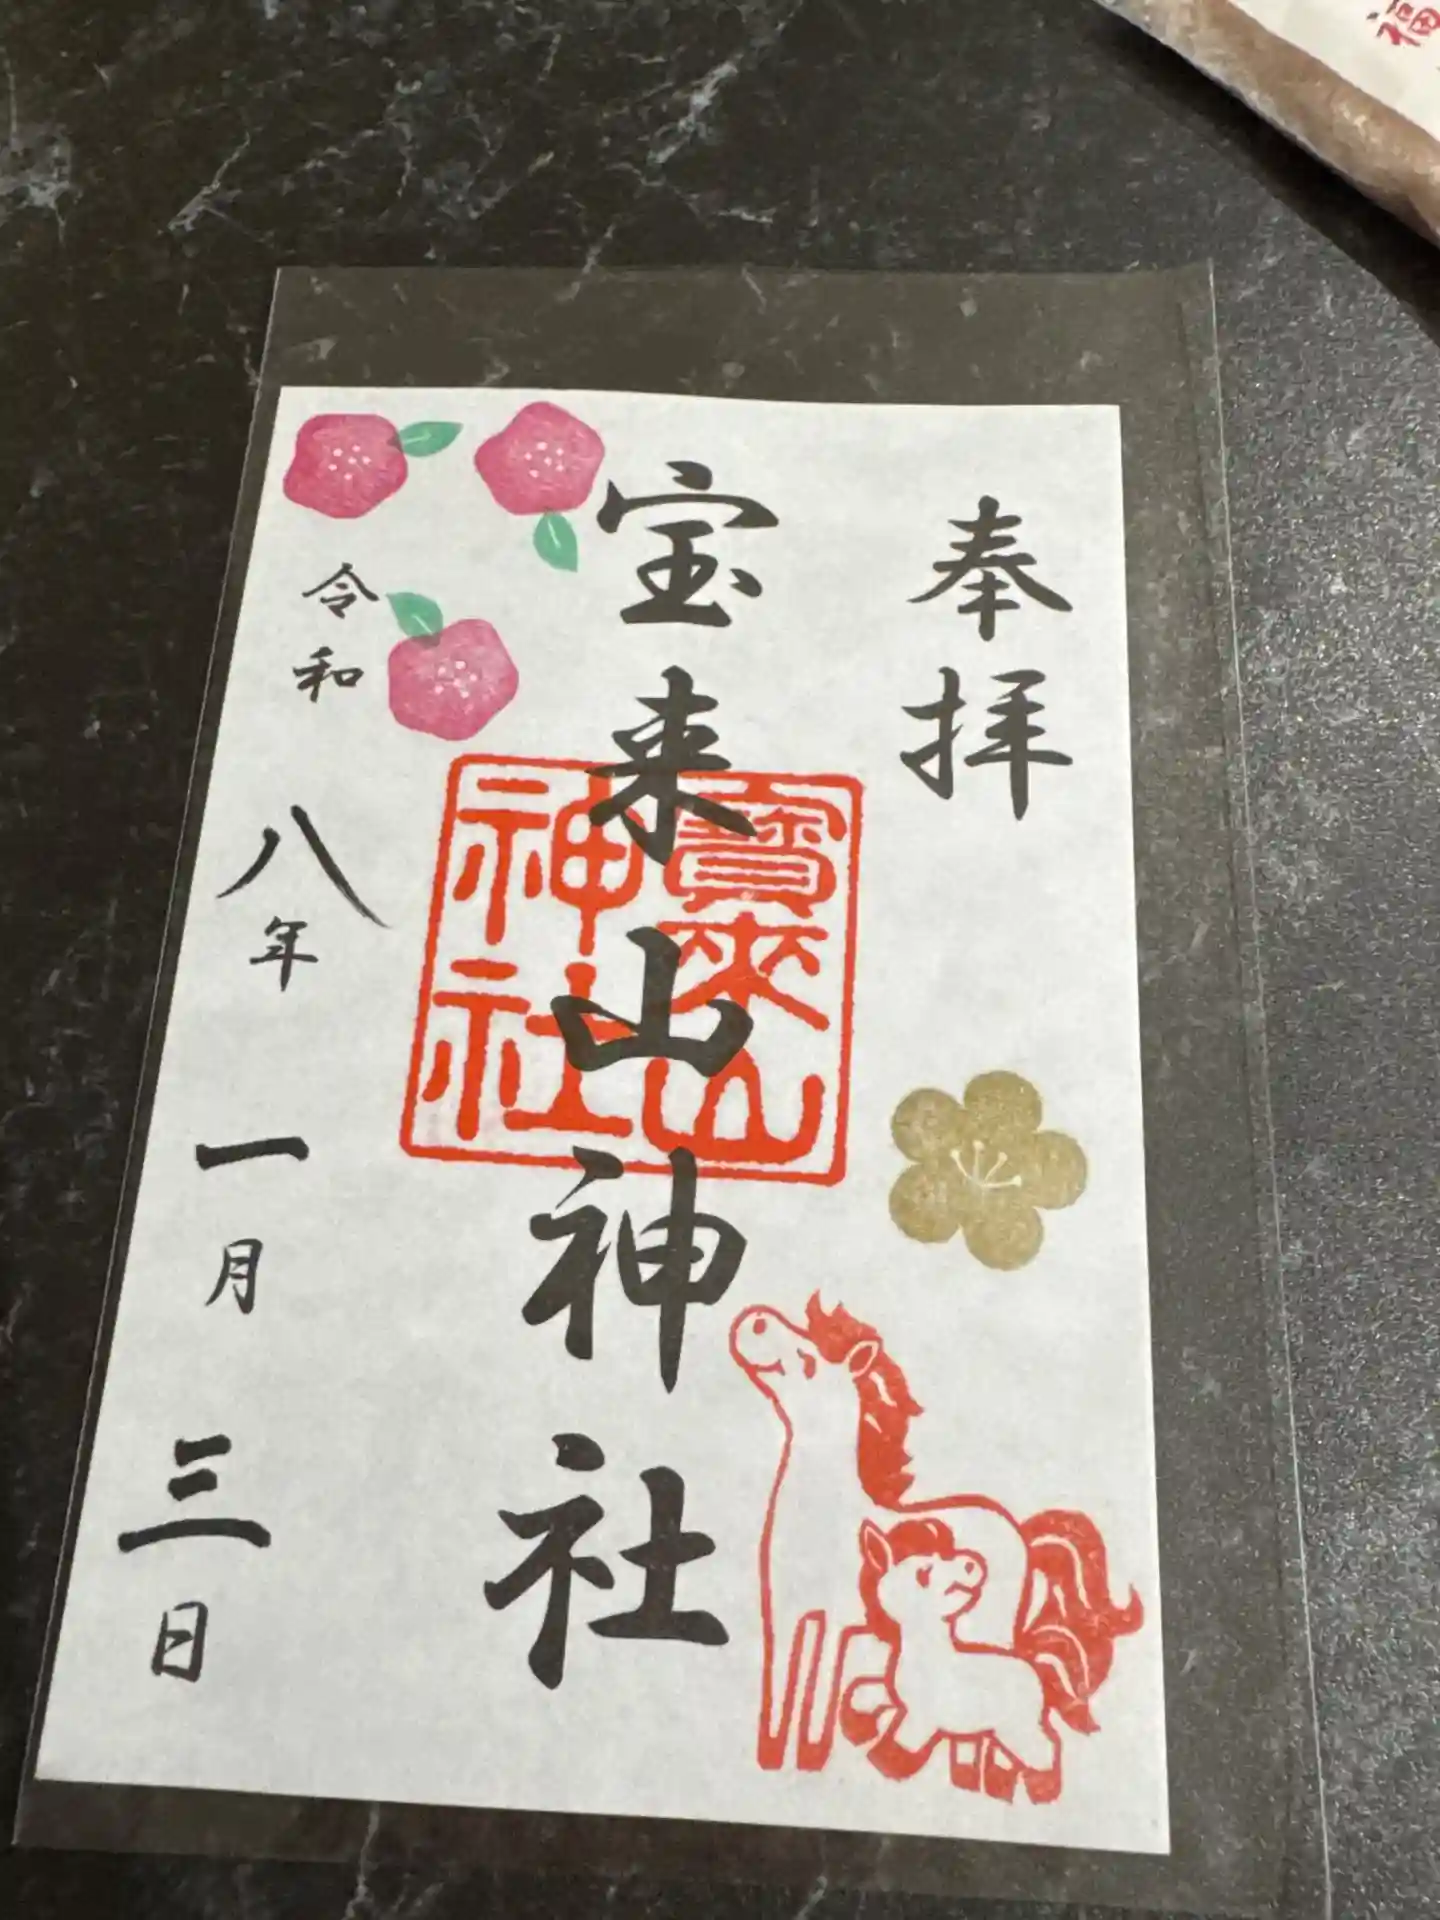 奉拝
宝来山神社
寶來山
神社
令和八年一月三日
福